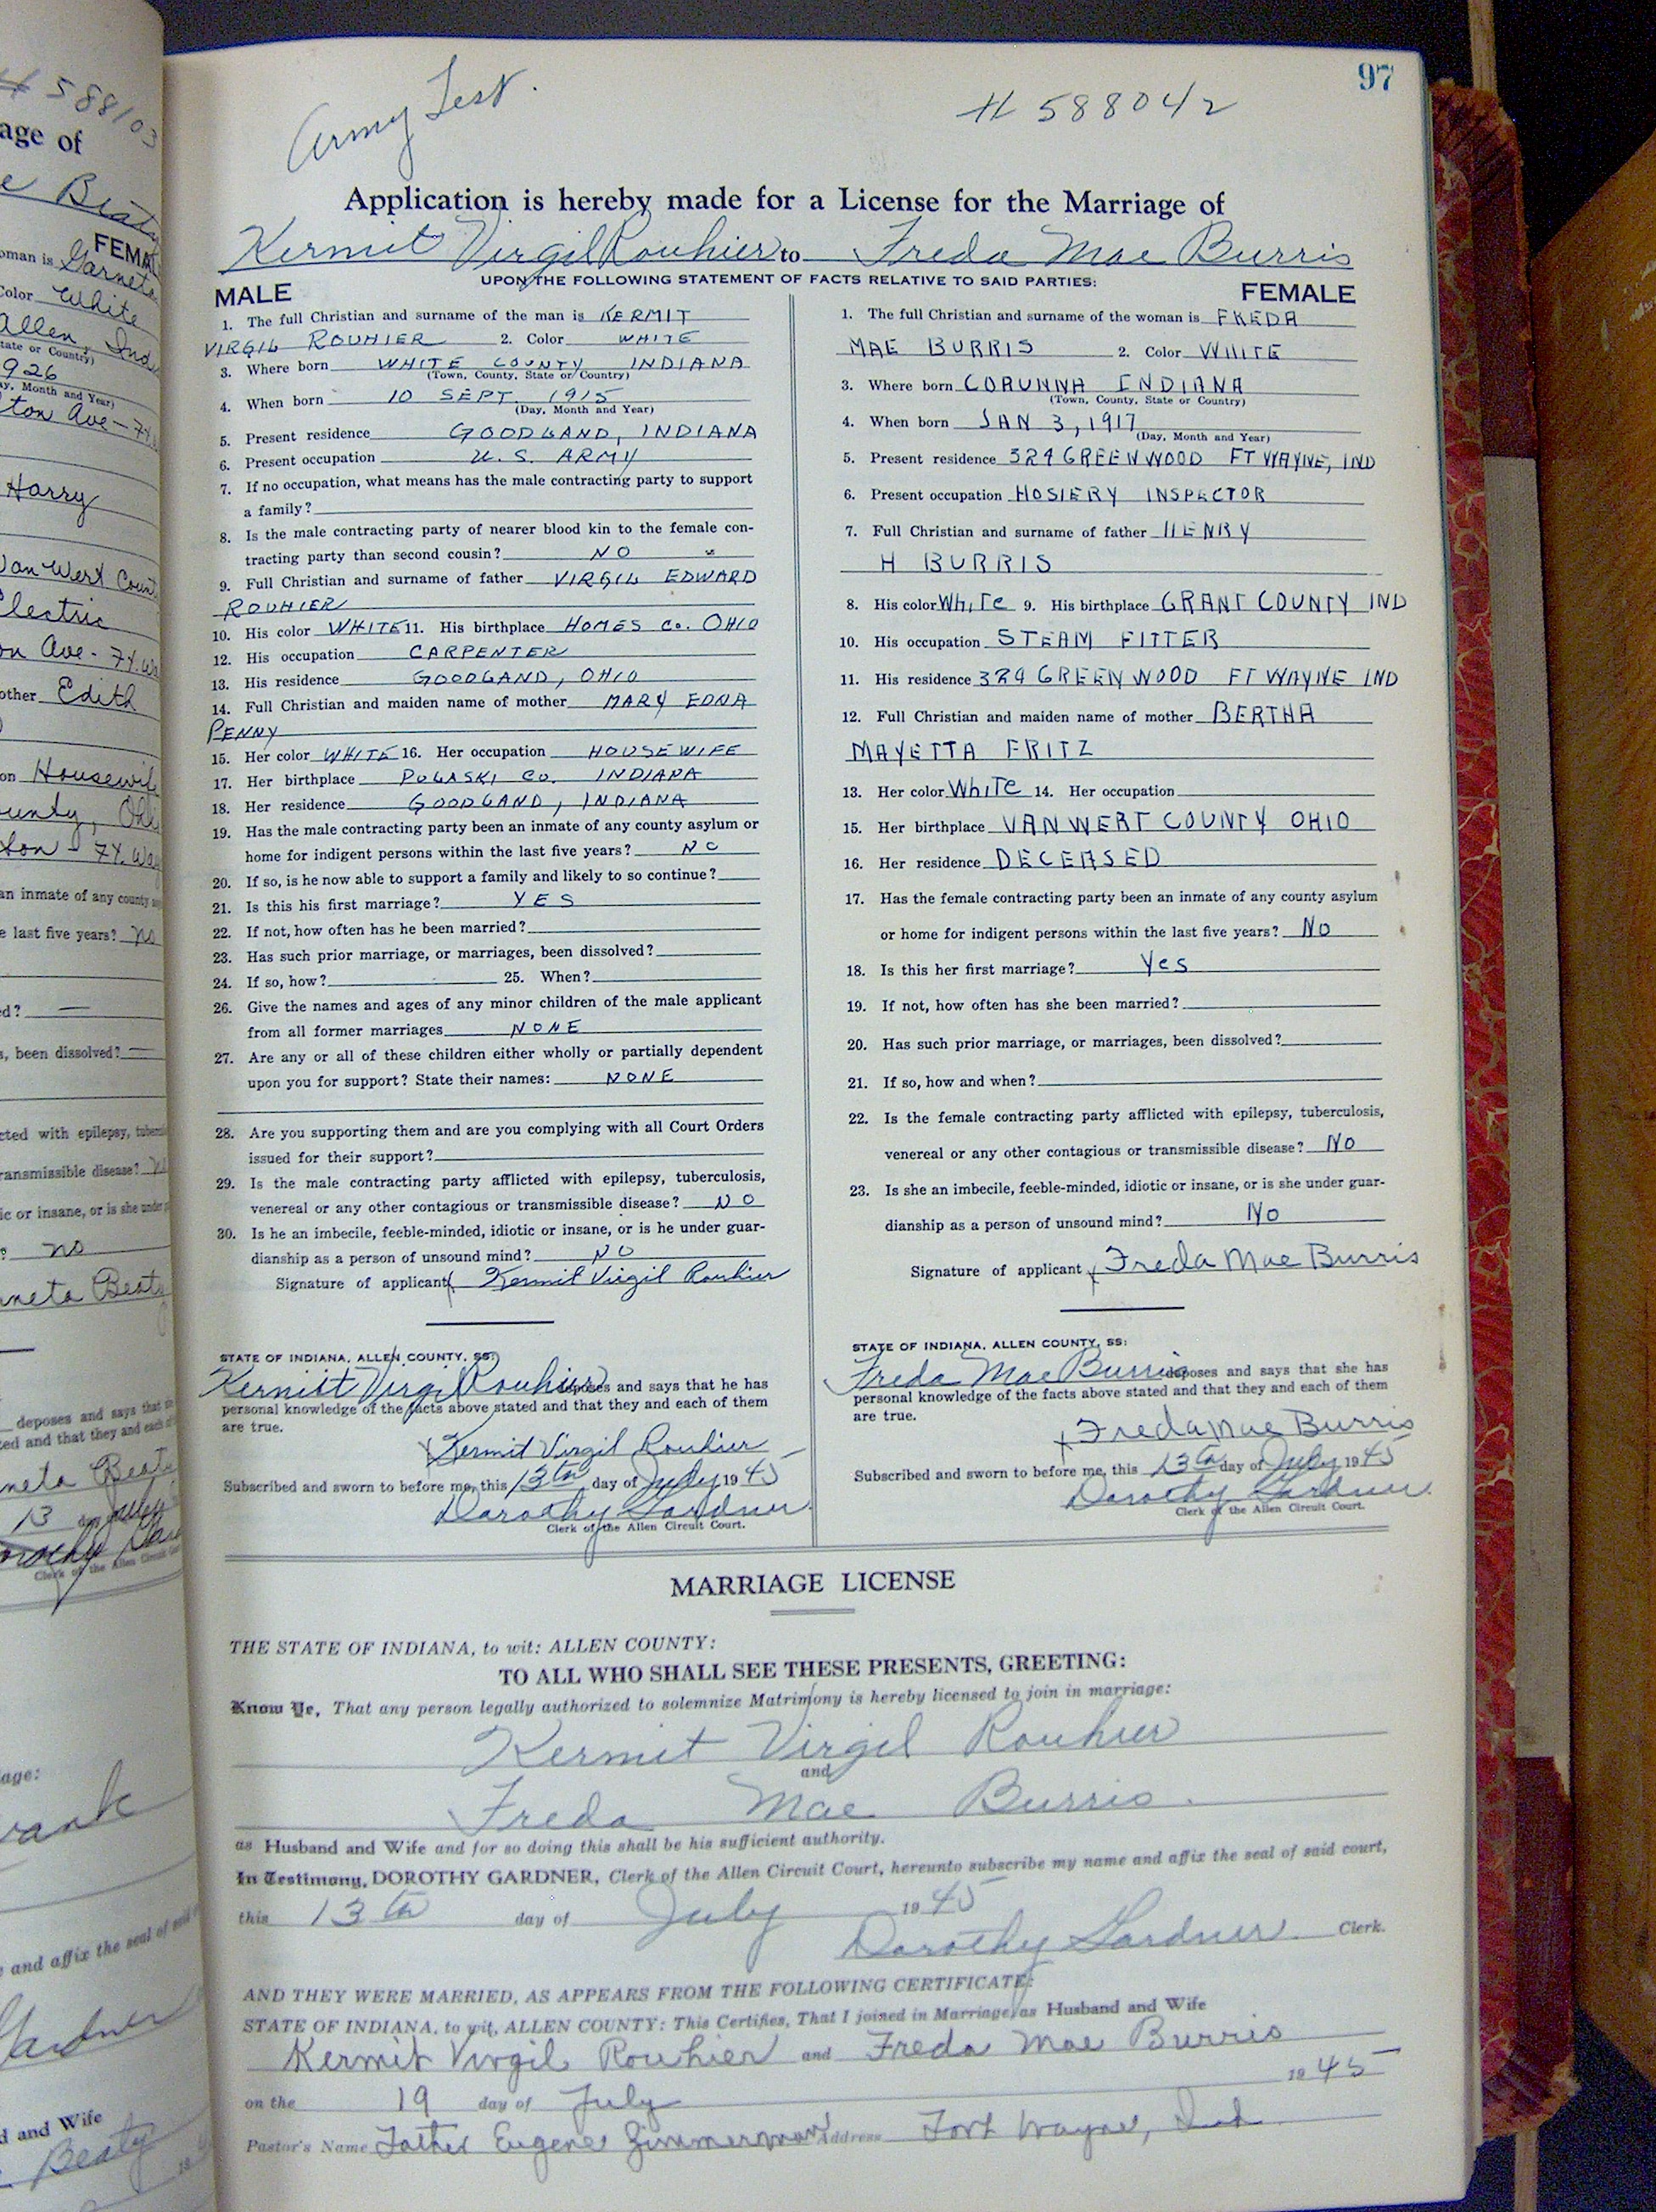 97
Army Test.
# 588042
Application is hereby made for a License for the Marriage of
Kermit Virgil Rouhier to Freda Mae Burris
UPON THE FOLLOWING STATEMENT OF FACTS RELATIVE TO SAID PARTIES:
MALE
1. The full Christian and surname of the man is KERMIT
VIRGIL ROUHIER 2. Color WHITE
3. Where born WHITE COUNTY INDIANA
(Town, County, State or Country)
4. When born 10 SEPT. 1915
(Day, Month and Year)
5. Present residence GOODLAND, INDIANA
6. Present occupation U.S. ARMY
7. If no occupation, what means has the male contracting party to support
a family?
8. Is the male contracting party of nearer blood kin to the female con-
tracting party than second cousin? NO
9. Full Christian and surname of father VIRGIL EDWARD
ROUHIER
10. His color WHITE 11. His birthplace HOMES CO. OHIO
12. His occupation CARPENTER
13. His residence GOODLAND, OHIO
14. Full Christian and maiden name of mother MARY EDNA
PENNY
15. Her color WHITE 16. Her occupation HOUSEWIFE
17. Her birthplace PULASKI CO. INDIANA
18. Her residence GOODLAND, INDIANA
19. Has the male contracting party been an inmate of any county asylum or
home for indigent persons within the last five years? NO
20. If so, is he now able to support a family and likely to so continue?
21. Is this his first marriage? YES
22. If not, how often has he been married?
23. Has such prior marriage, or marriages, been dissolved?
24. If so, how? 25. When?
26. Give the names and ages of any minor children of the male applicant
from all former marriages NONE
27. Are any or all of these children either wholly or partially dependent
upon you for support? State their names: NONE
28. Are you supporting them and are you complying with all Court Orders
issued for their support?
29. Is the male contracting party afflicted with epilepsy, tuberculosis,
venereal or any other contagious or transmissible disease? NO
30. Is he an imbecile, feeble-minded, idiotic or insane, or is he under guar-
dianship as a person of unsound mind? NO
Signature of applicant x Kermit Virgil Rouhier
STATE OF INDIANA, ALLEN COUNTY, SS:
Kermitt Virgil Rouhier deposes and says that he has
personal knowledge of the facts above stated and that they and each of them
are true.
x Kermit Virgil Rouhier
Subscribed and sworn to before me, this 13th day of July 1945
Dorothy Gardner
Clerk of the Allen Circuit Court.
FEMALE
1. The full Christian and surname of the woman is FREDA
MAE BURRIS 2. Color WHITE
3. Where born CORUNNA INDIANA
(Town, County, State or Country)
4. When born JAN 3, 1917
(Day, Month and Year)
5. Present residence 329 GREENWOOD FT WAYNE, IND
6. Present occupation HOSIERY INSPECTOR
7. Full Christian and surname of father HENRY
H BURRIS
8. His color White 9. His birthplace GRANT COUNTY IND
10. His occupation STEAM FITTER
11. His residence 329 GREENWOOD FT WAYNE IND
12. Full Christian and maiden name of mother BERTHA
MAYETTA FRITZ
13. Her color White 14. Her occupation
15. Her birthplace VANWERT COUNTY OHIO
16. Her residence DECEASED
17. Has the female contracting party been an inmate of any county asylum
or home for indigent persons within the last five years? No
18. Is this her first marriage? Yes
19. If not, how often has she been married?
20. Has such prior marriage, or marriages, been dissolved?
21. If so, how and when?
22. Is the female contracting party afflicted with epilepsy, tuberculosis,
venereal or any other contagious or transmissible disease? No
23. Is she an imbecile, feeble-minded, idiotic or insane, or is she under guar-
dianship as a person of unsound mind? No
Signature of applicant x Freda Mae Burris
STATE OF INDIANA, ALLEN COUNTY, SS:
Freda Mae Burris deposes and says that she has
personal knowledge of the facts above stated and that they and each of them
are true.
x Freda Mae Burris
Subscribed and sworn to before me, this 13th day of July 1945
Dorothy Gardner
Clerk of the Allen Circuit Court.
MARRIAGE LICENSE
THE STATE OF INDIANA, to wit: ALLEN COUNTY:
TO ALL WHO SHALL SEE THESE PRESENTS, GREETING:
Know Ye, That any person legally authorized to solemnize Matrimony is hereby licensed to join in marriage:
Kermit Virgil Rouhier
and
Freda Mae Burris.
as Husband and Wife and for so doing this shall be his sufficient authority.
In Testimony, DOROTHY GARDNER, Clerk of the Allen Circuit Court, hereunto subscribe my name and affix the seal of said court,
this 13th day of July 1945
Dorothy Gardner Clerk.
AND THEY WERE MARRIED, AS APPEARS FROM THE FOLLOWING CERTIFICATE:
STATE OF INDIANA, to wit, ALLEN COUNTY: This Certifies, That I joined in Marriage, as Husband and Wife
Kermit Virgil Rouhier and Freda Mae Burris
on the 19 day of July 1945
Pastor's Name Father Eugene Zimmerman Address Fort Wayne, Ind.